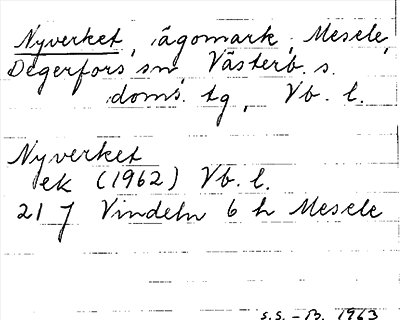 Nyverket, ägomark, Mesele,
Degerfors sn, Västerb. s.
doms. tg, Vb. l.
Nyverket
ek (1962) Vb. l.
21 J Vindeln 6 h Mesele
S.S. - B. 1963